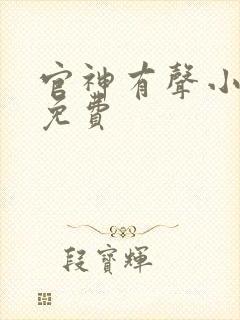 官神有聲小
免費
段寶輝